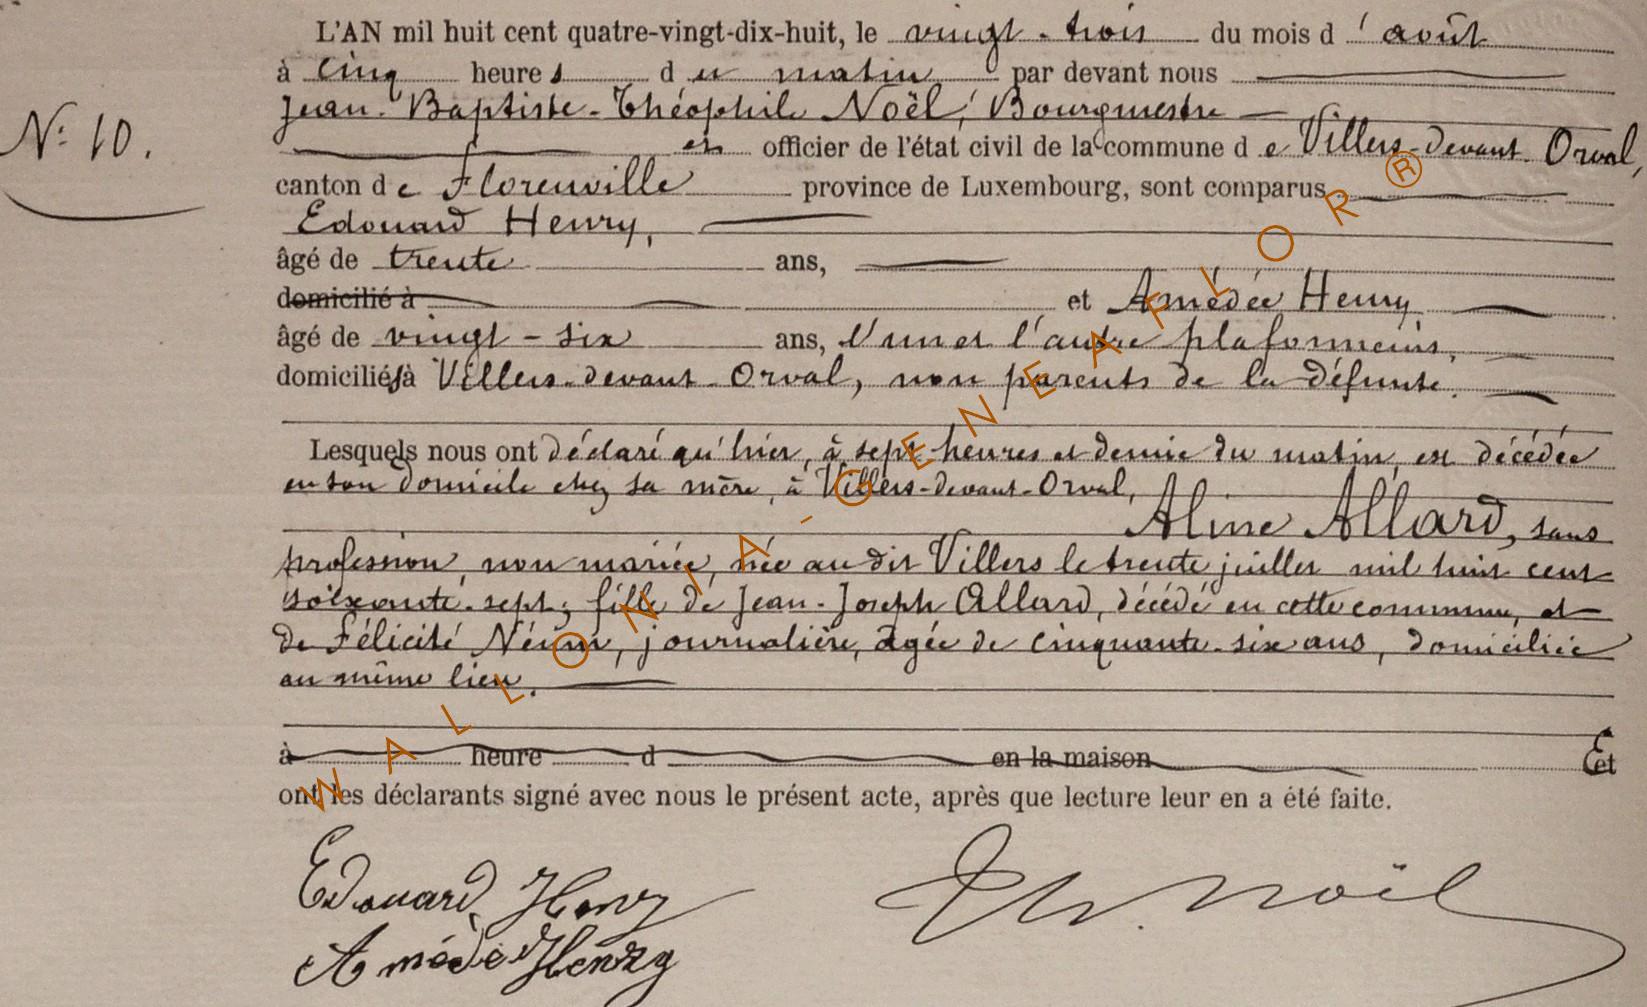 L'AN mil huit cent quatre-vingt-dix-huit, le vingt-trois du mois d'août
à cinq heures du matin par devant nous
Jean-Baptiste-Théophile Noël, Bourgmestre
N: 10.
en officier de l'état civil de la commune de Villers-devant-Orval,
canton de Florenville province de Luxembourg, sont comparus
Edouard Henry,
âgé de trente ans,
domicilié à et Amédée Henry
âgé de vingt-six ans, l'un et l'autre plafonneurs,
domiciliés à Villers-devant-Orval, non parents de la défunte.
Lesquels nous ont déclaré qu'hier, à sept heures et demie du matin, est décédée
en son domicile chez sa mère, à Villers-devant-Orval,
Aline Allard, sans
profession, non mariée, née au dit Villers le trente juillet mil huit cent
soixante-sept; fille de Jean-Joseph Allard, décédé en cette commune, et
de Félicité, journalière, âgée de cinquante-six ans, domiciliée
au même lieu.
à heure d en la maison Et
ont les déclarants signé avec nous le présent acte, après que lecture leur en a été faite.
Edouard Henry
Th. Noël
Amédée Henry
WALLONIA-GENEAFLOR®